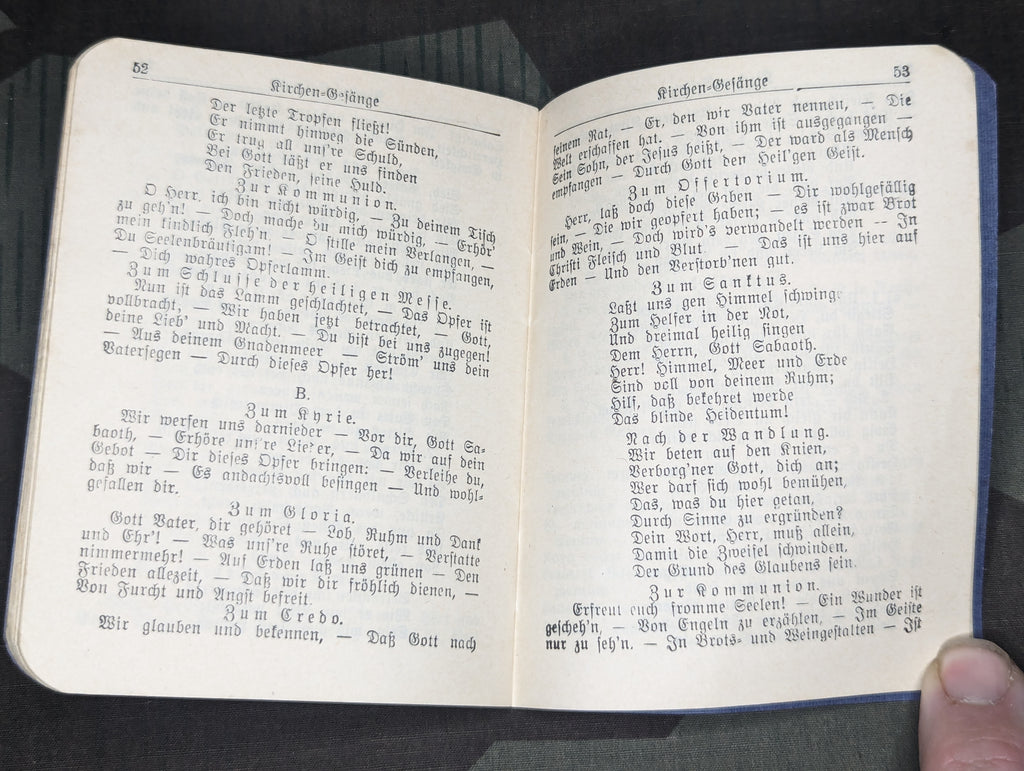 52
Kirchen-Gesänge
Der letzte Tropfen fließt!
Er nimmt hinweg die Sünden,
Er trug all uns're Schuld,
Bei Gott läßt er uns finden
Den Frieden, seine Huld.
Zur Kommunion.
O Herr, ich bin nicht würdig, — Zu deinem Tisch
zu geh'n! — Doch mache du mich würdig, — Erhör'
mein kindlich Fleh'n — O stille mein Verlangen, —
Du Seelenbräutigam! — Im Geist dich zu empfangen,
— Dich wahres Opferlamm.
Zum Schlusse der heiligen Messe.
Nun ist das Lamm geschlachtet, — Das Opfer ist
vollbracht, — Wir haben jetzt betrachtet, — Gott,
deine Lieb' und Macht. — Du bist bei uns zugegen!
— Aus deinem Gnadenmeer — Ström' uns dein
Vatersegen — Durch dieses Opfer her!
B.
Zum Kyrie.
Wir werfen uns darnieder — Vor dir, Gott Sa-
baoth, — Erhöre uns're Lieder, — Da wir auf dein
Gebot — Dir dieses Opfer bringen: — Verleihe du,
daß wir — Es andachtsvoll besingen — Und wohl-
gefallen dir.
Zum Gloria.
Gott Vater, dir gehöret — Lob, Ruhm und Dank
und Ehr'! — Was uns're Ruhe störet, — Verstatte
nimmermehr! — Auf Erden laß uns grünen — Den
Frieden allezeit, — Daß wir dir fröhlich dienen, —
Von Furcht und Angst befreit.
Zum Credo.
Wir glauben und bekennen, — Daß Gott nach
53
Kirchen-Gesänge
seinem Rat, — Er, den wir Vater nennen, — Die
Welt erschaffen hat. — Von ihm ist ausgegangen —
Sein Sohn, der Jesus heißt, — Der ward als Mensch
empfangen — Durch Gott den Heil'gen Geist.
Zum Offertorium.
Herr, laß doch diese Gaben — Dir wohlgefällig
sein, — Die wir geopfert haben; — es ist zwar Brot
und Wein, — Doch wird's verwandelt werden — In
Christi Fleisch und Blut. — Das ist uns hier auf
Erden — Und den Verstorb'nen gut.
Zum Sanktus.
Laßt uns gen Himmel schwingen
Zum Helfer in der Not,
Und dreimal heilig singen
Dem Herrn, Gott Sabaoth.
Herr! Himmel, Meer und Erde
Sind voll von deinem Ruhm;
Hilf, daß bekehret werde
Das blinde Heidentum!
Nach der Wandlung.
Wir beten auf den Knien,
Verborg'ner Gott, dich an;
Wer darf sich wohl bemühen,
Das, was du hier getan,
Durch Sinne zu ergründen?
Dein Wort, Herr, muß allein,
Damit die Zweifel schwinden,
Der Grund des Glaubens sein.
Zur Kommunion.
Erfreut euch fromme Seelen! — Ein Wunder ist
gescheh'n, — Von Engeln zu erzählen, — Im Geiste
nur zu seh'n. — In Brots- und Weingestalten — Ist